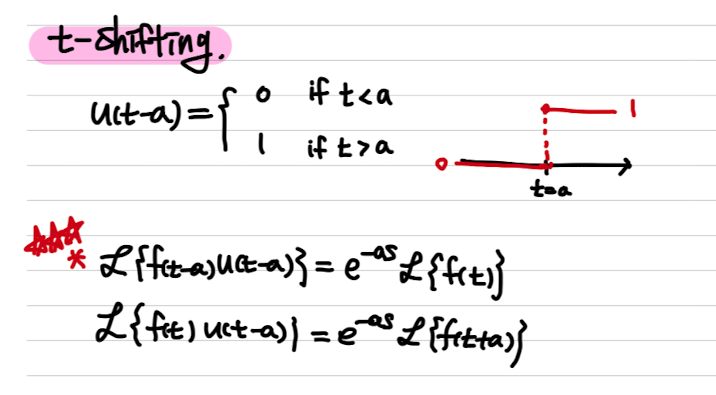 t-shifting.
u(t-a) = { 0 if t<a
1 if t>a
1
0
t=a
* ℒ{f(t-a)u(t-a)} = e^-as ℒ{f(t)}
ℒ{f(t)u(t-a)} = e^-as ℒ{f(t+a)}